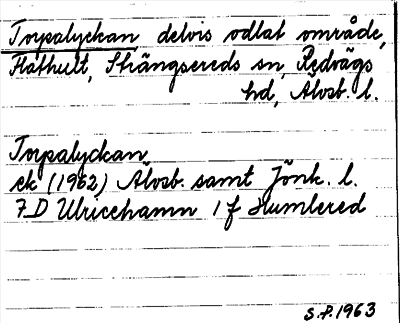 Torpalyckan delvis odlat område,
Flathult, Strängsereds sn, Redvägs
hd, Älvsb. l.
Torpalyckan
ek (1962) Älvsb. samt Jönk. l.
7D Ulricehamn 1 f Humlered
S.P. 1963